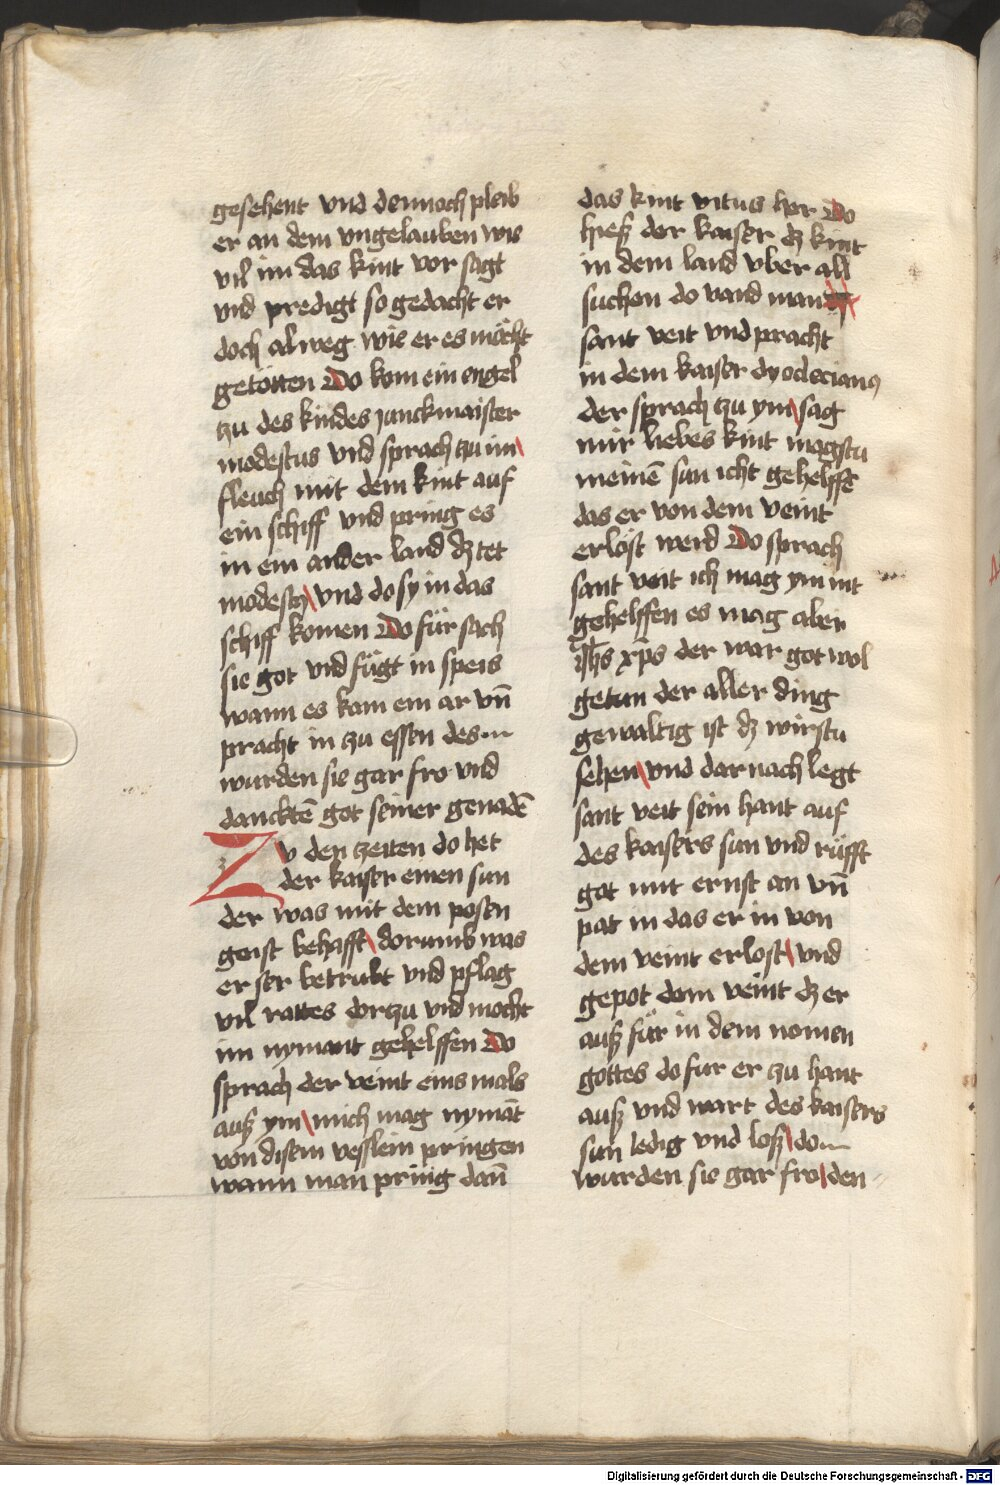 gesehent vnd dennoch pleib
er an dem vngelauben wie
vil im das kint vor sagt
vnd predigt so gedacht er
doch alweg wie er es möcht
getötten Do kom ein engel
zu des kindes zunckmaister
modestus vnd sprach zu im
fleuch mit dem kint auf
ein schiff vnd pring es
in ein ander land dz tet
modestꝰ vnd do sy in das
schiff komen Do für sach
sie got vnd fügt in speis
wann es kam ein ar vn̄
pracht in zu essen des
wurden sie gar fro vnd
dancktē got seiner genadē
Zv den zeiten do het
der kaiser einen sun
der was mit dem posen
geist behafft dorumb was
er ser betrubt vnd pflag
vil rattes dorzu vnd mocht
im nymant gehelffen Do
sprach der veint eins mals
auß ym mich mag nymāt
von disem vesslein pringen
wann man pring dan̄
das kint vitus her Do
hieß der kaiser dz kint
in dem land vber all
suchen do vand man
sant veit vnd pracht
in dem kaiser dyodecianꝰ
der sprach zu ym sag
mir liebes kint magstu
meinē sun icht gehelffē
das er von dem veint
erlöst werd Do sprach
sant veit ich mag ym nit
gehelffen es mag aber
ihs xp̄s der war got wol
getun der aller ding
gewaltig ist dz wirstu
sehen vnd darnach legt
sant veit sein hant auf
des kaisers sun vnd rüfft
got mit ernst an vn̄
pat in das er in von
dem veint erlost vnd
gepot dem veint dz er
auß für in dem nomen
gottes do fur er zu hant
auß vnd wart des kaisers
sun ledig vnd loß do
wurden sie gar fro den
Digitalisierung gefördert durch die Deutsche Forschungsgemeinschaft - DFG